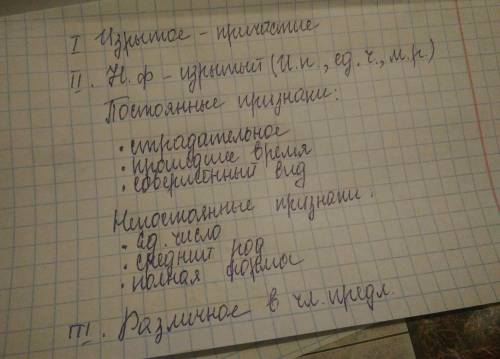 I Изрытое - причастие
II. Н.ф - изрытый (И.п., ед.ч., м.р.)
Постоянные признаки:
• страдательное
• прошедшее время
• совершенный вид
Непостоянные признаки.
• ед. число
• средний род
• полная формы
III. Различное в чл. предл.